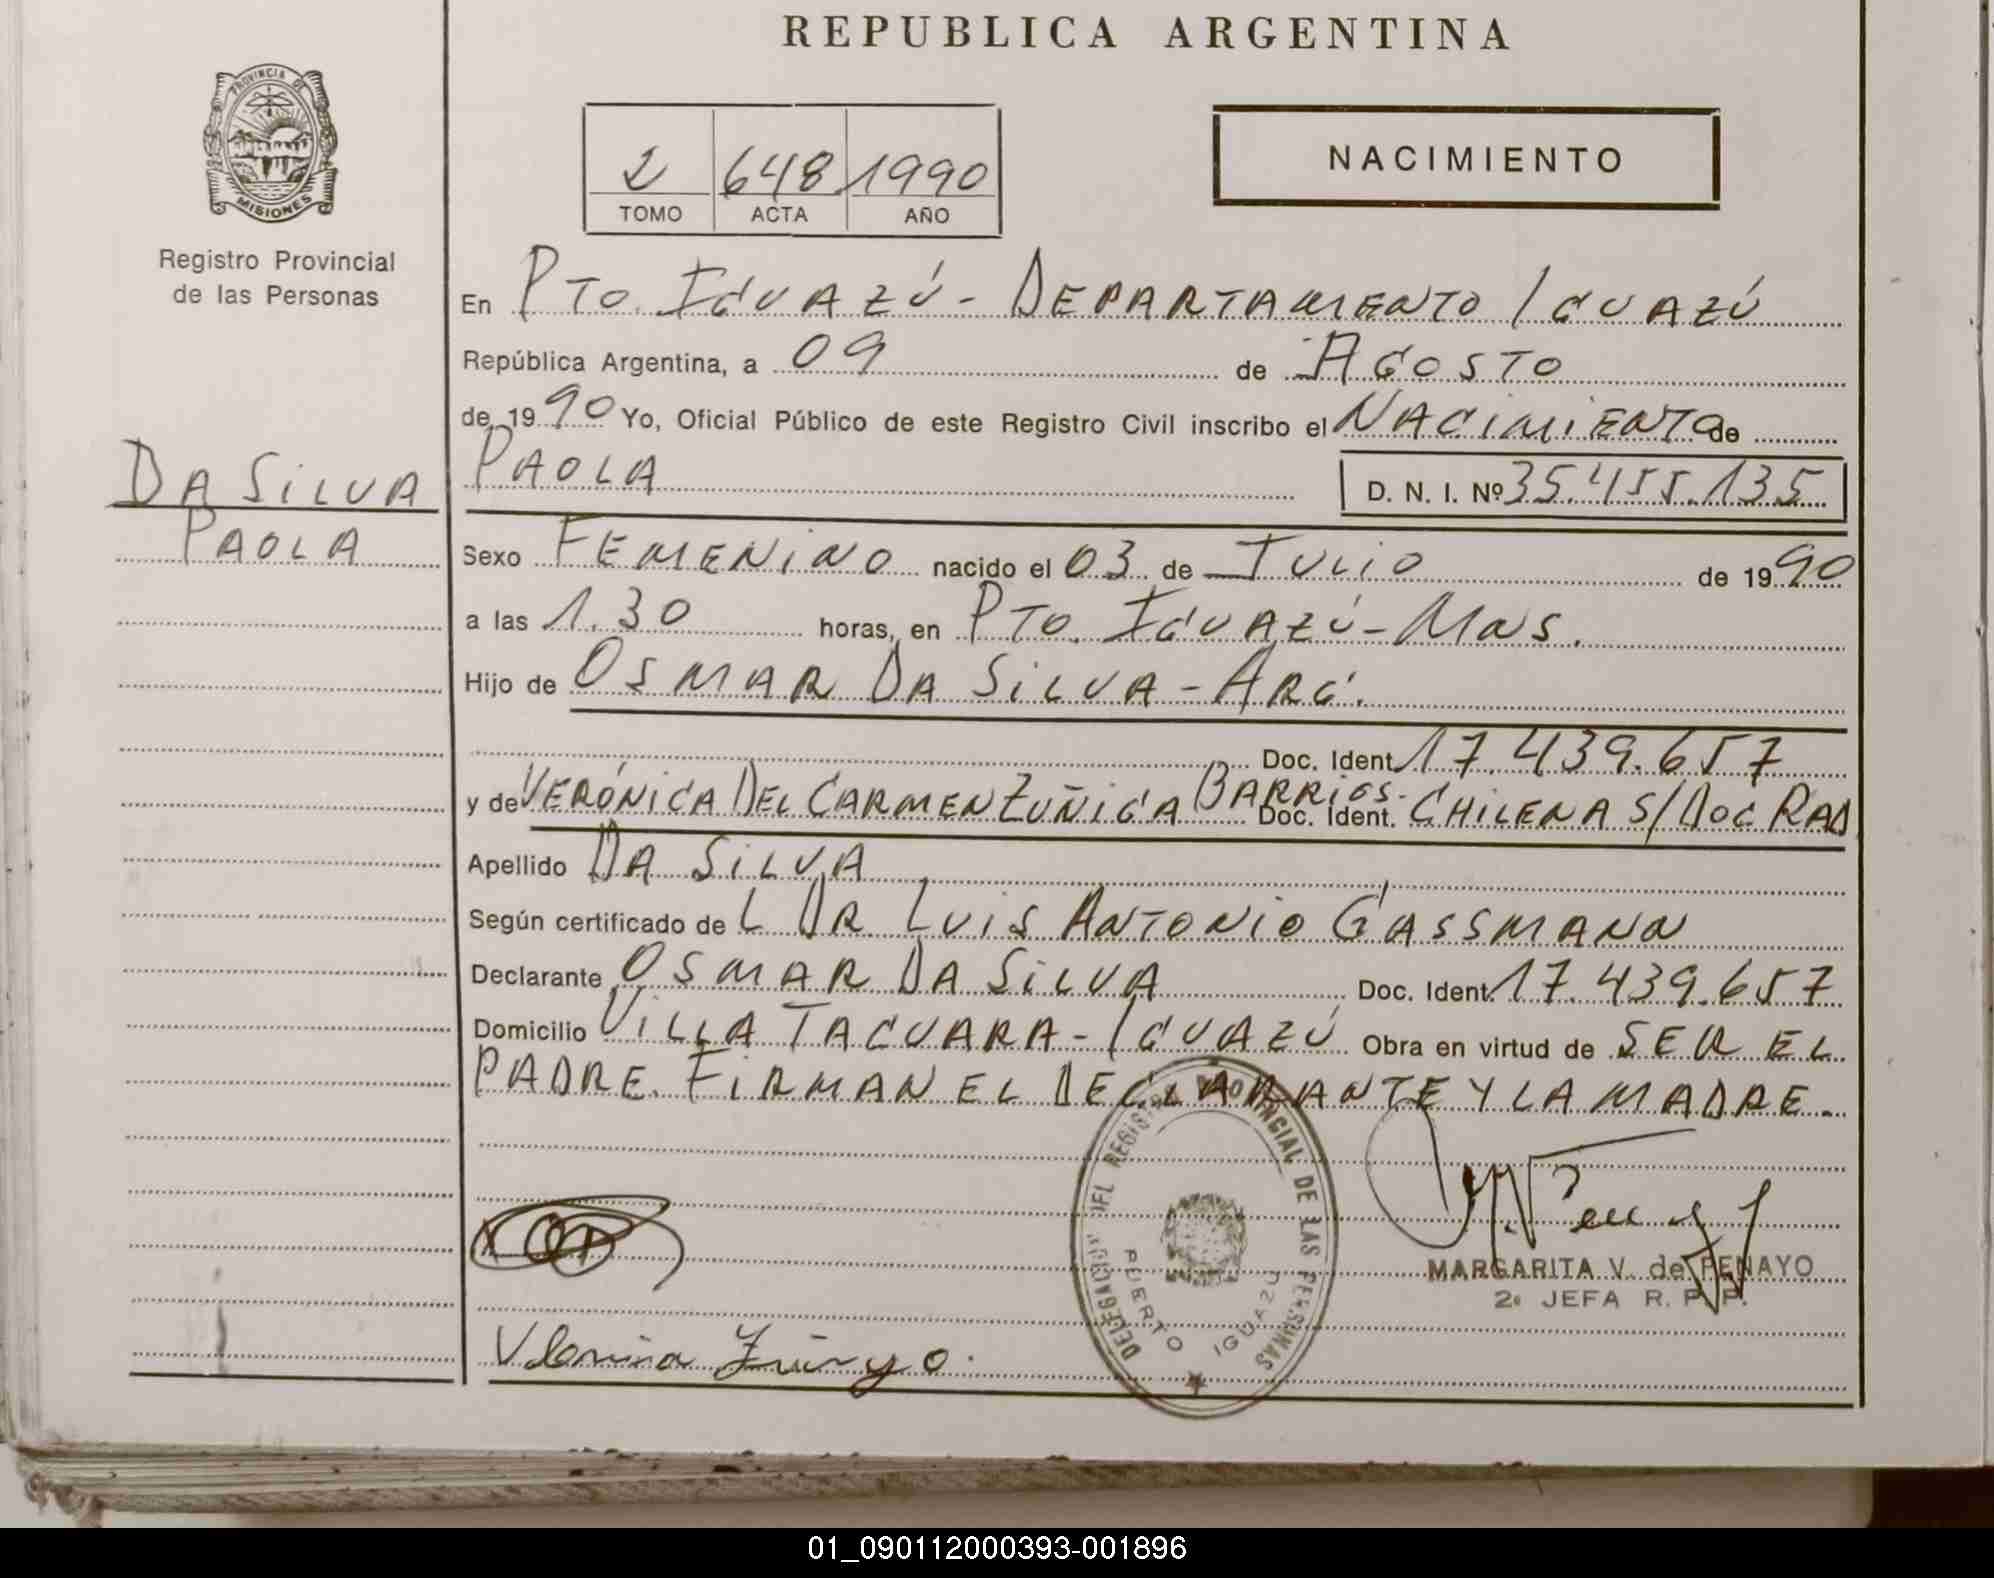 REPUBLICA ARGENTINA
PROVINCIA DE
MISIONES
Registro Provincial
de las Personas
2 648 1990
TOMO ACTA AÑO
NACIMIENTO
En Pto. Iguazú - Departamento Iguazú
República Argentina, a 09 de Agosto
de 1990 Yo, Oficial Público de este Registro Civil inscribo el Nacimiento de
Da Silva
Paola
Paola D. N. I. Nº 35.455.135
Sexo Femenino nacido el 03 de Julio de 1990
a las 1.30 horas, en Pto. Iguazú - Mns.
Hijo de Osmar Da Silva - Arg.
Doc. Ident. 17.439.657
y de Verónica Del Carmen Zuñiga Barrios. Doc. Ident. Chilena S/Doc Rad
Apellido Da Silva
Según certificado de L Dr. Luis Antonio Gassmann
Declarante Osmar Da Silva Doc. Ident. 17.439.657
Domicilio Villa Tacuara - Iguazú Obra en virtud de ser el
padre. Firman el declarante y la madre.
DELEGACION DEL REGISTRO PROVINCIAL DE LAS PERSONAS
PUERTO IGUAZU
MARGARITA V. de PENAYO
2º JEFA R. P. P.
01_090112000393-001896